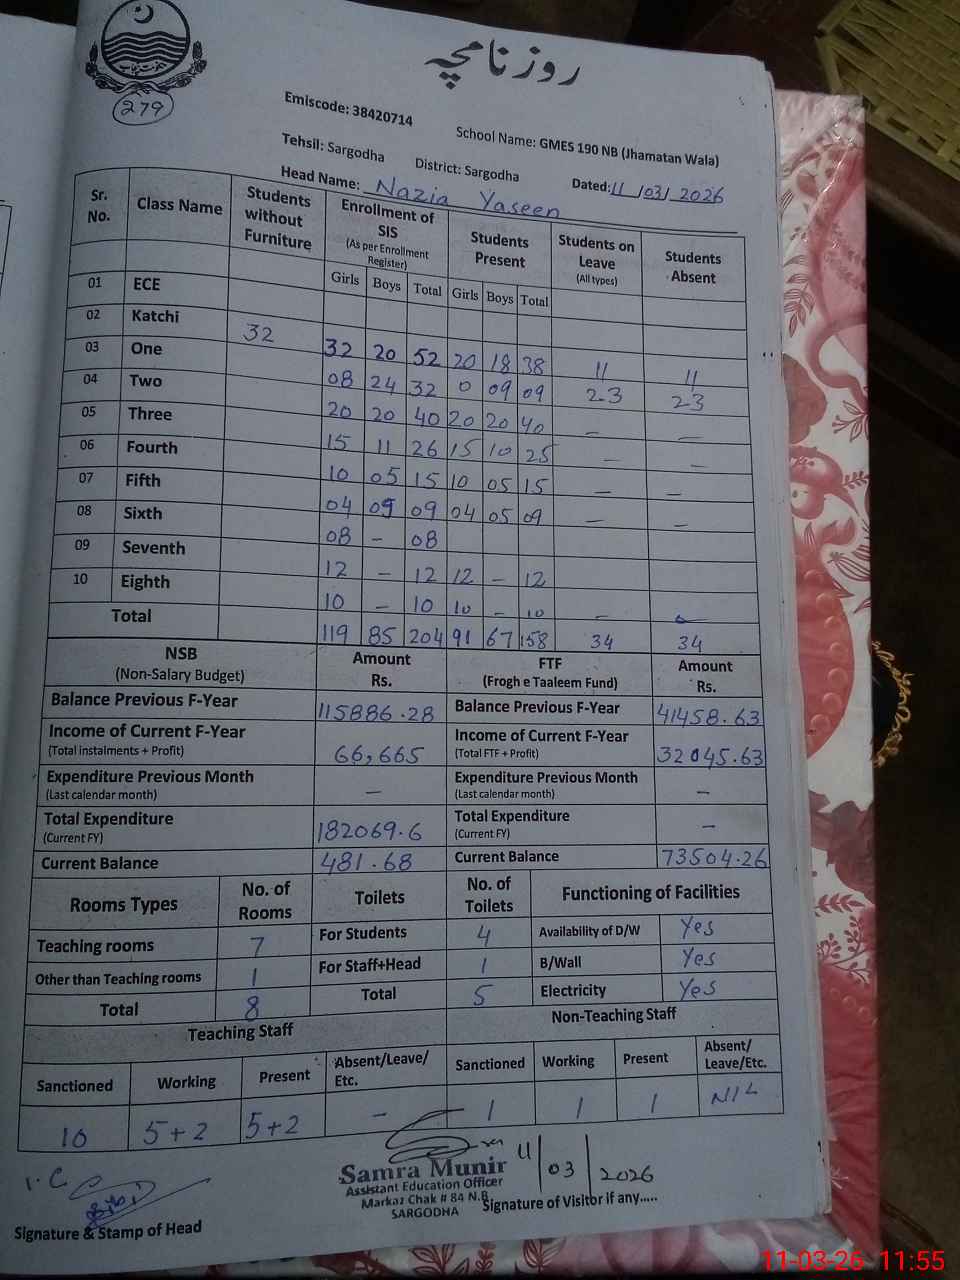 روزنامچہ
279
Emiscode: 38420714
School Name: GMES 190 NB (Jhamatan Wala)
Tehsil: Sargodha District: Sargodha Dated: 11/03/2026
Head Name: Nazia Yaseen
Sr. No. Class Name Students without Furniture Enrollment of SIS (As per Enrollment Register) Students Present Students on Leave (All types) Students Absent
Girls Boys Total Girls Boys Total
01 ECE
02 Katchi 32 32 20 52 20 18 38 11 11
03 One 08 24 32 0 09 09 23 23
04 Two 20 20 40 20 20 40 - -
05 Three 15 11 26 15 10 25 - -
06 Fourth 10 05 15 10 05 15 - -
07 Fifth 04 05 09 04 05 09 - -
08 Sixth 08 - 08
09 Seventh 12 - 12 12 - 12
10 Eighth 10 - 10 10 - 10 - -
Total 119 85 204 91 67 158 34 34
NSB (Non-Salary Budget) Amount Rs. FTF (Frogh e Taaleem Fund) Amount Rs.
Balance Previous F-Year 115886.28 Balance Previous F-Year 41458.63
Income of Current F-Year (Total instalments + Profit) 66,665 Income of Current F-Year (Total FTF + Profit) 32045.63
Expenditure Previous Month (Last calendar month) - Expenditure Previous Month (Last calendar month) -
Total Expenditure (Current FY) 182069.6 Total Expenditure (Current FY) -
Current Balance 481.68 Current Balance 73504.26
Rooms Types No. of Rooms Toilets No. of Toilets Functioning of Facilities
Teaching rooms 7 For Students 4 Availability of D/W Yes
Other than Teaching rooms 1 For Staff+Head 1 B/Wall Yes
Total 8 Total 5 Electricity Yes
Teaching Staff Non-Teaching Staff
Sanctioned Working Present Absent/Leave/Etc. Sanctioned Working Present Absent/Leave/Etc.
10 5+2 5+2 - 1 1 1 NIL
11/03/2026
Samra Munir
Assistant Education Officer
Markaz Chak # 84 N.B
SARGODHA
Signature & Stamp of Head Signature of Visitor if any.....
11-03-26 11:55